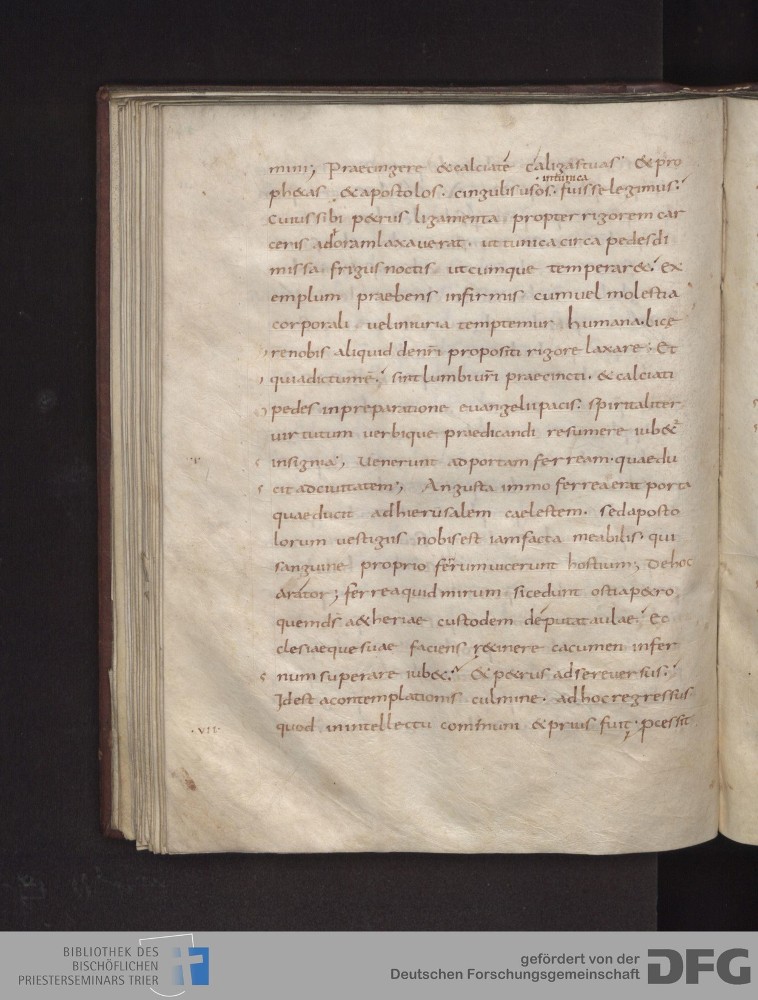 mini; Praecingere &calciate caligastuas. &pro
ph&as &apostolos. cingulis usos. fuisse legimus.
intunica
cuius sibi p&rus ligamenta propter rigorem car
ceris adoram laxauerat. ut tunica circa pedes di
missa frigus noctis utcumque temperar&. Ex
emplum praebens infirmis cum uel molestia
corporali uel iniuria temptemur humana. lice
re nobis aliquid den̄ri propositi rigore laxare. Et
quia dictum ē. sint lumbi ur̄i praecincti. & calciati
pedes inpreparatione euangelii pacis. spiritaliter
uirtutum uerbique praedicandi resumere iub&
insignia; Uenerunt ad portam ferream. quae du
cit ad ciuitatem; Angusta immo ferrea erat porta
quae ducit ad hierusalem caelestem. sed aposto
lorum uestigiis nobis est iam facta meabilis. qui
sanguine proprio ferrum uicerunt hostium; De hoc
arator; ferrea quid mirum si cedunt ostia p&ro
quem ds̄ a&heriae custodem deputat aulae. Ec
clesiaeque suae faciens r&inere cacumen infer
num superare iub&. & p&rus ad se reuersus.
Idest a contemplationis culmine. ad hoc regressus
quod in intellectu communi & prius fuit. pcessit
.VII.
BIBLIOTHEK DES
BISCHÖFLICHEN
PRIESTERSEMINARS TRIER
gefördert von der
Deutschen Forschungsgemeinschaft
DFG